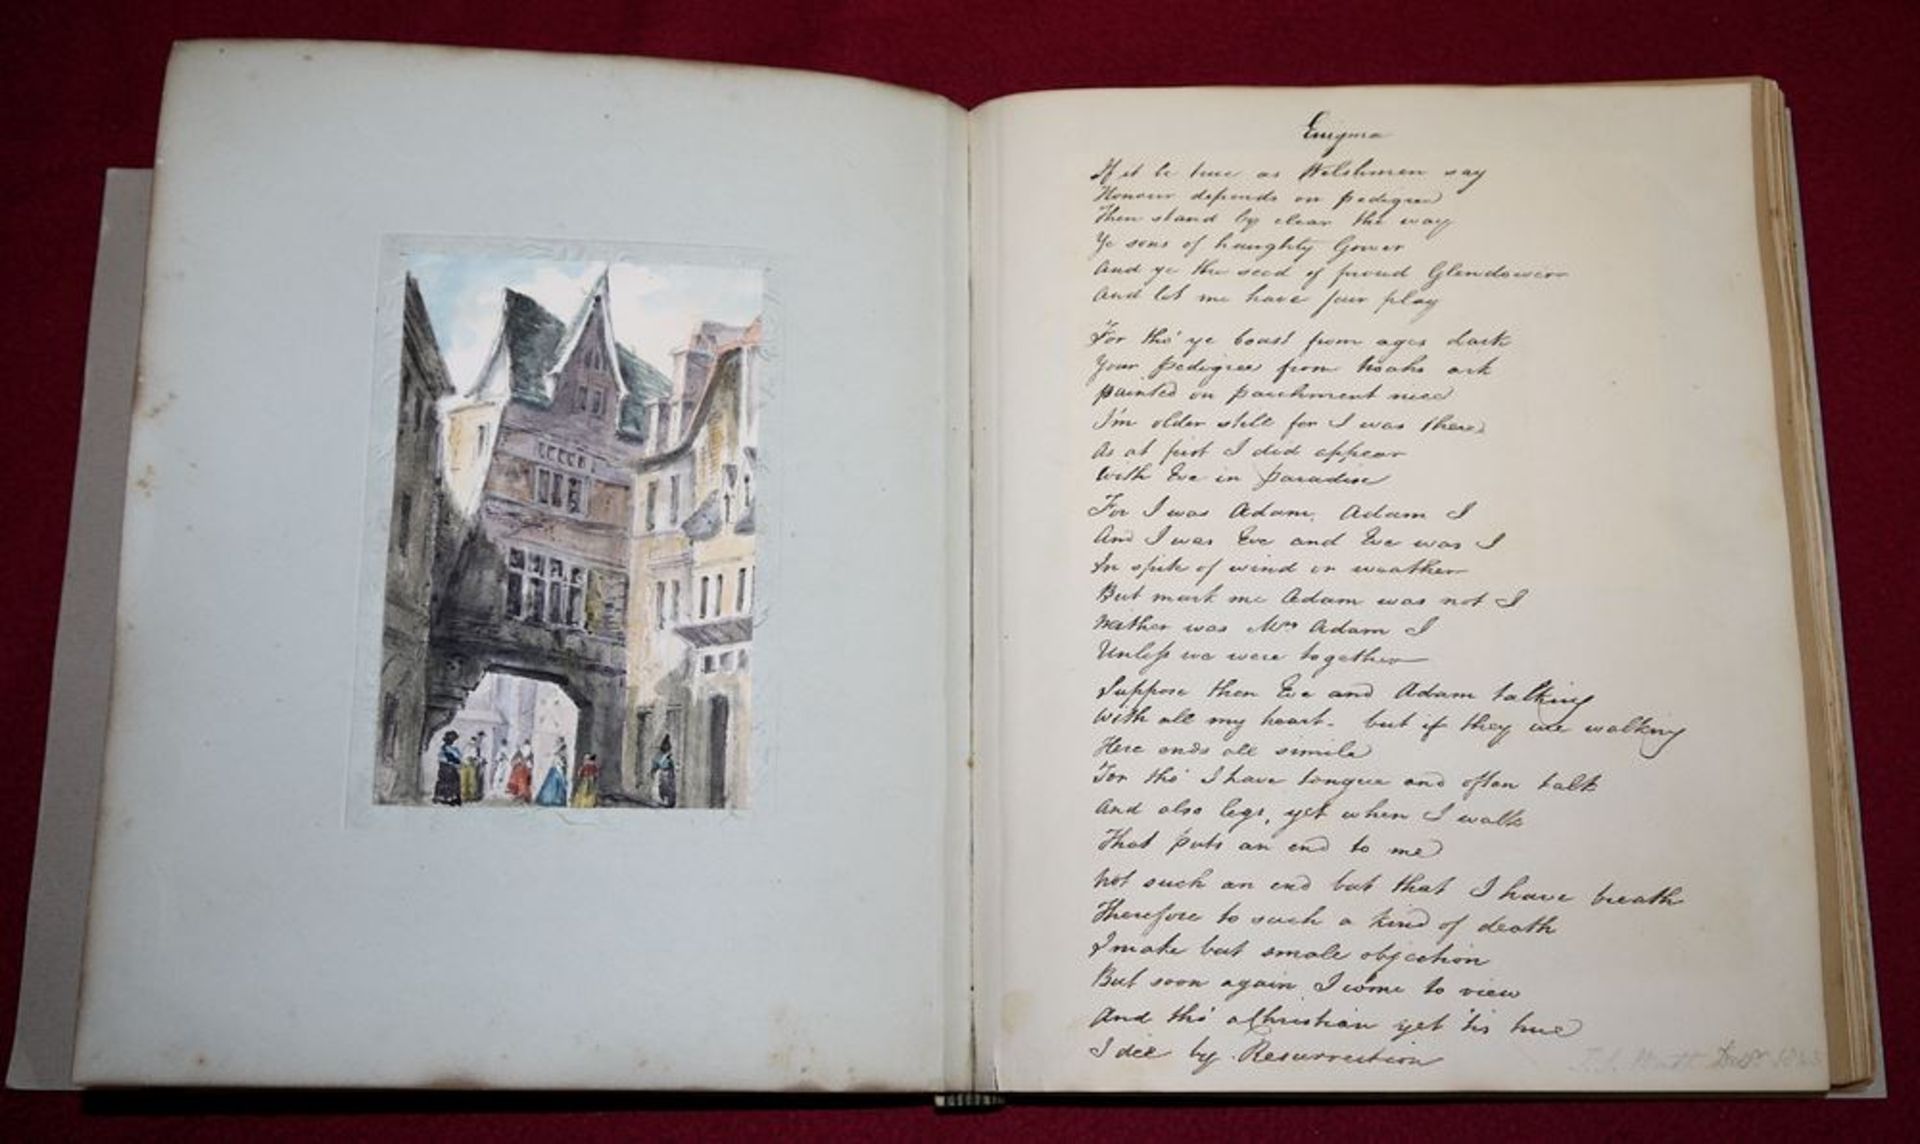 Enigma
If it be true as Welshmen say
Honour depends on pedigree
Then stand by clear the way
Ye sons of haughty Gower
And ye the seed of proud Glendower
And let me have fair play
For tho' ye boast from ages dark
Your pedigree from Noahs ark
painted on parchment nice
I'm older still for I was there
As at first I did appear
With Eve in paradise
For I was Adam, Adam I
And I was Eve and Eve was I
In spite of wind or weather
But mark me Adam was not I
Neither was Mrs Adam I
Unless we were together
Suppose then Eve and Adam talking
With all my heart - but if they are walking
Here ends all simile
For tho' I have tongue and often talk
And also legs, yet when I walk
That puts an end to me
Not such an end but that I have breath
Therefore to such a kind of death
I make but small objection
But soon again I come to view
And tho' a Christian yet 'tis true
I die by Resurrection